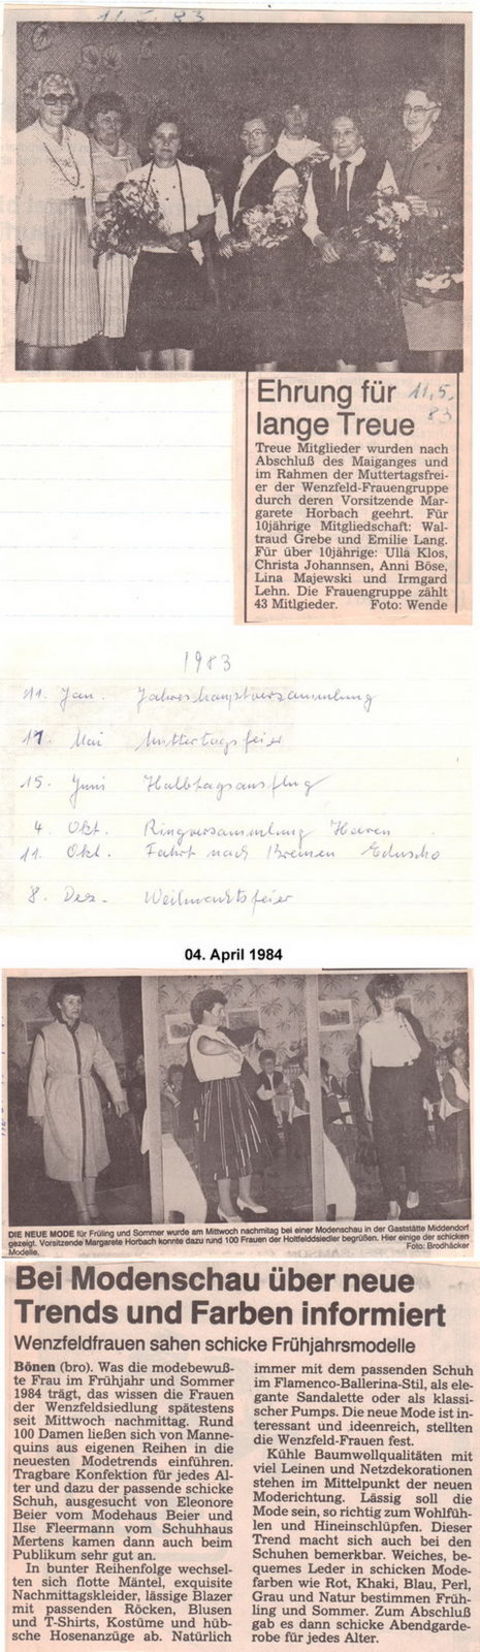 11.5.83
Ehrung für 11.5.
lange Treue 83
Treue Mitglieder wurden nach
Abschluß des Maiganges und
im Rahmen der Muttertagsfrei-
er der Wenzfeld-Frauengruppe
durch deren Vorsitzende Mar-
garete Horbach geehrt. Für
10jährige Mitgliedschaft: Wal-
traud Grebe und Emilie Lang.
Für über 10jährige: Ulla Klos,
Christa Johannsen, Anni Böse,
Lina Majewski und Irmgard
Lehn. Die Frauengruppe zählt
43 Mitlgieder. Foto: Wende
1983
11. Jan. Jahreshauptversammlung
17. Mai Muttertagsfeier
15. Juni Halbtagsausflug
4. Okt. Ringversammlung Heeren
11. Okt. Fahrt nach Bremen Eduscho
8. Dez. Weihnachtsfeier
04. April 1984
DIE NEUE MODE für Früling und Sommer wurde am Mittwoch nachmitag bei einer Modenschau in der Gaststätte Middendorf
gezeigt. Vorsitzende Margarete Horbach konnte dazu rund 100 Frauen der Holtfelddsiedler begrüßen. Hier einige der schicken
Modelle. Foto: Brodhäcker
Bei Modenschau über neue
Trends und Farben informiert
Wenzfeldfrauen sahen schicke Frühjahrsmodelle
Bönen (bro). Was die modebewuß-
te Frau im Frühjahr und Sommer
1984 trägt, das wissen die Frauen
der Wenzfeldsiedlung spätestens
seit Mittwoch nachmittag. Rund
100 Damen ließen sich von Manne-
quins aus eigenen Reihen in die
neuesten Modetrends einführen.
Tragbare Konfektion für jedes Al-
ter und dazu der passende schicke
Schuh, ausgesucht von Eleonore
Beier vom Modehaus Beier und
Ilse Fleermann vom Schuhhaus
Mertens kamen dann auch beim
Publikum sehr gut an.
In bunter Reihenfolge wechsel-
ten sich flotte Mäntel, exquisite
Nachmittagskleider, lässige Blazer
mit passenden Röcken, Blusen
und T-Shirts, Kostüme und hüb-
sche Hosenanzüge ab. Natürlich
immer mit dem passenden Schuh
im Flamenco-Ballerina-Stil, als ele-
gante Sandalette oder als klassi-
scher Pumps. Die neue Mode ist in-
teressant und ideenreich, stellten
die Wenzfeld-Frauen fest.
Kühle Baumwollqualitäten mit
viel Leinen und Netzdekorationen
stehen im Mittelpunkt der neuen
Moderichtung. Lässig soll die
Mode sein, so richtig zum Wohlfüh-
len und Hineinschlüpfen. Dieser
Trend macht sich auch bei den
Schuhen bemerkbar. Weiches, be-
quemes Leder in schicken Mode-
farben wie Rot, Khaki, Blau, Perl,
Grau und Natur bestimmen Früh-
ling und Sommer. Zum Abschluß
gab es dann schicke Abendgarde-
robe für jedes Alter.